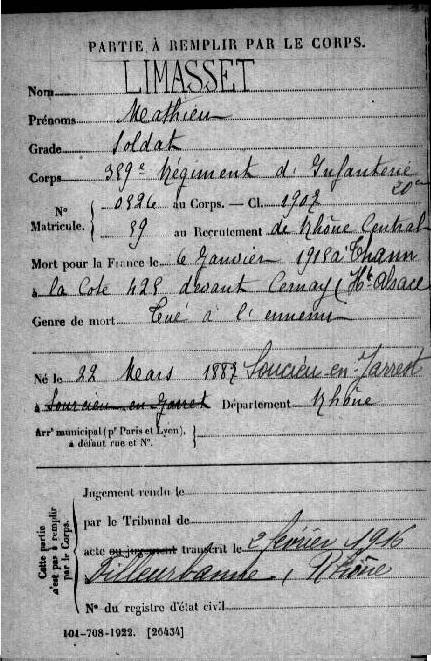 PARTIE À REMPLIR PAR LE CORPS.
Nom LIMASSET
Prénoms Mathieu
Grade Soldat
Corps 359e Régiment d'Infanterie
20e
N° Matricule. 0526 au Corps. — Cl. 1907
89 au Recrutement de Rhône Central
Mort pour la France le 6 Janvier 1915 à Thann
à la Cote 425 devant Cernay (Hte Alsace
Genre de mort Tué à l'ennemi
Né le 22 Mars 1887 Soucieu-en-Jarrest
à Sourcieu en Jarret Département Rhône
Arrt municipal (pr Paris et Lyon), à défaut rue et N°.
Cette partie n'est pas à remplir par le Corps.
Jugement rendu le
par le Tribunal de
acte ou jugement transcrit le 2 février 1916
Villeurbanne, Rhône
N° du registre d'état civil
101-708-1922. [26434]